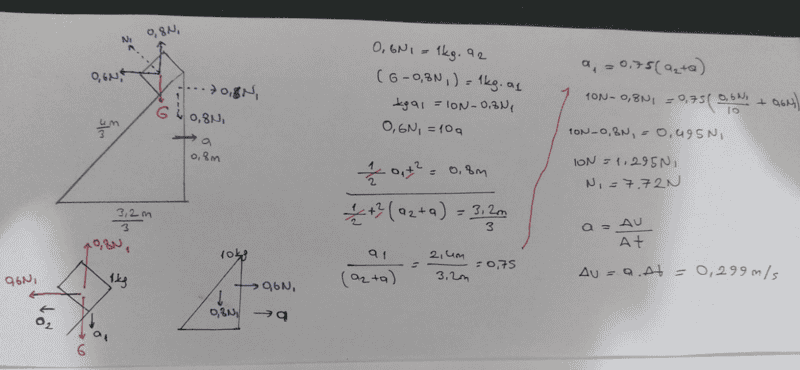 0,8N₁
N₁
0,6N₁
G
0,8N₁
4m/3
a
0,8m
3,2m/3
0,8N₁
0,6N₁
1kg
a₂
a₁
G
10kg
0,6N₁
0,8N₁
a
0,6N₁ = 1kg. a₂
(G - 0,8N₁) = 1kg. a₁
kg a₁ = 10N - 0,8N₁
0,6N₁ = 10a
1/2 a₁t² = 0,8m
1/2 t² (a₂+a) = 3,2m/3
a₁/(a₂+a) = 2,4m/3,2m = 0,75
a₁ = 0,75(a₂+a)
10N - 0,8N₁ = 0,75(0,6N₁/10 + 0,6N₁)
10N - 0,8N₁ = 0,495N₁
10N = 1,295N₁
N₁ = 7.72N
a = ΔU/Δt
ΔU = a.Δt = 0,299m/s